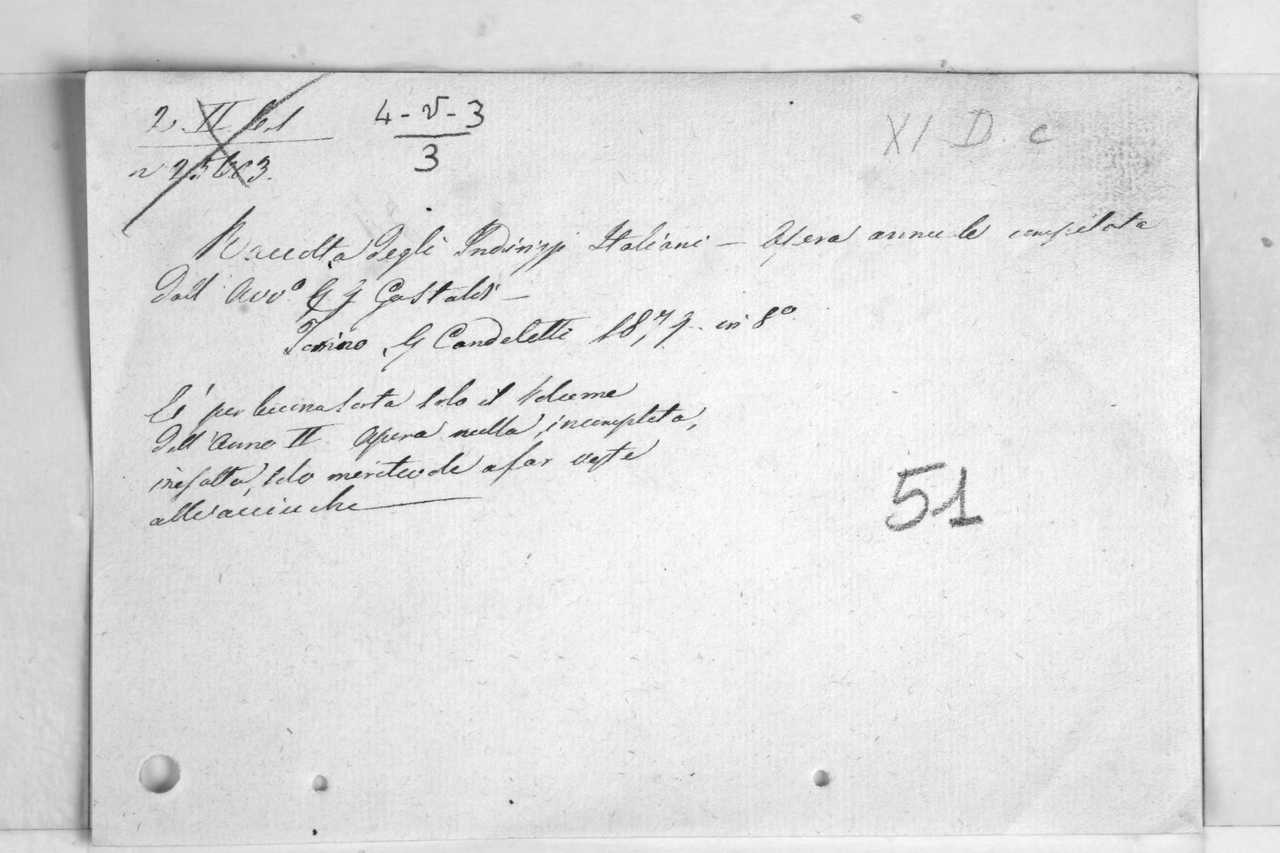 2. II 6.1
4-V-3
3
XI D. c
n 25603.
Raccolta degli Indirizzi Italiani — Opera annuale compilata
dall' Avvº G J Gastaldi —
Torino G Candeletti 187 in 8º
C'è per buona sorta solo il Volume
dell'Anno II Opera nulla, incompleta,
inesatta, solo meritevole a far veste
alle acciughe
51